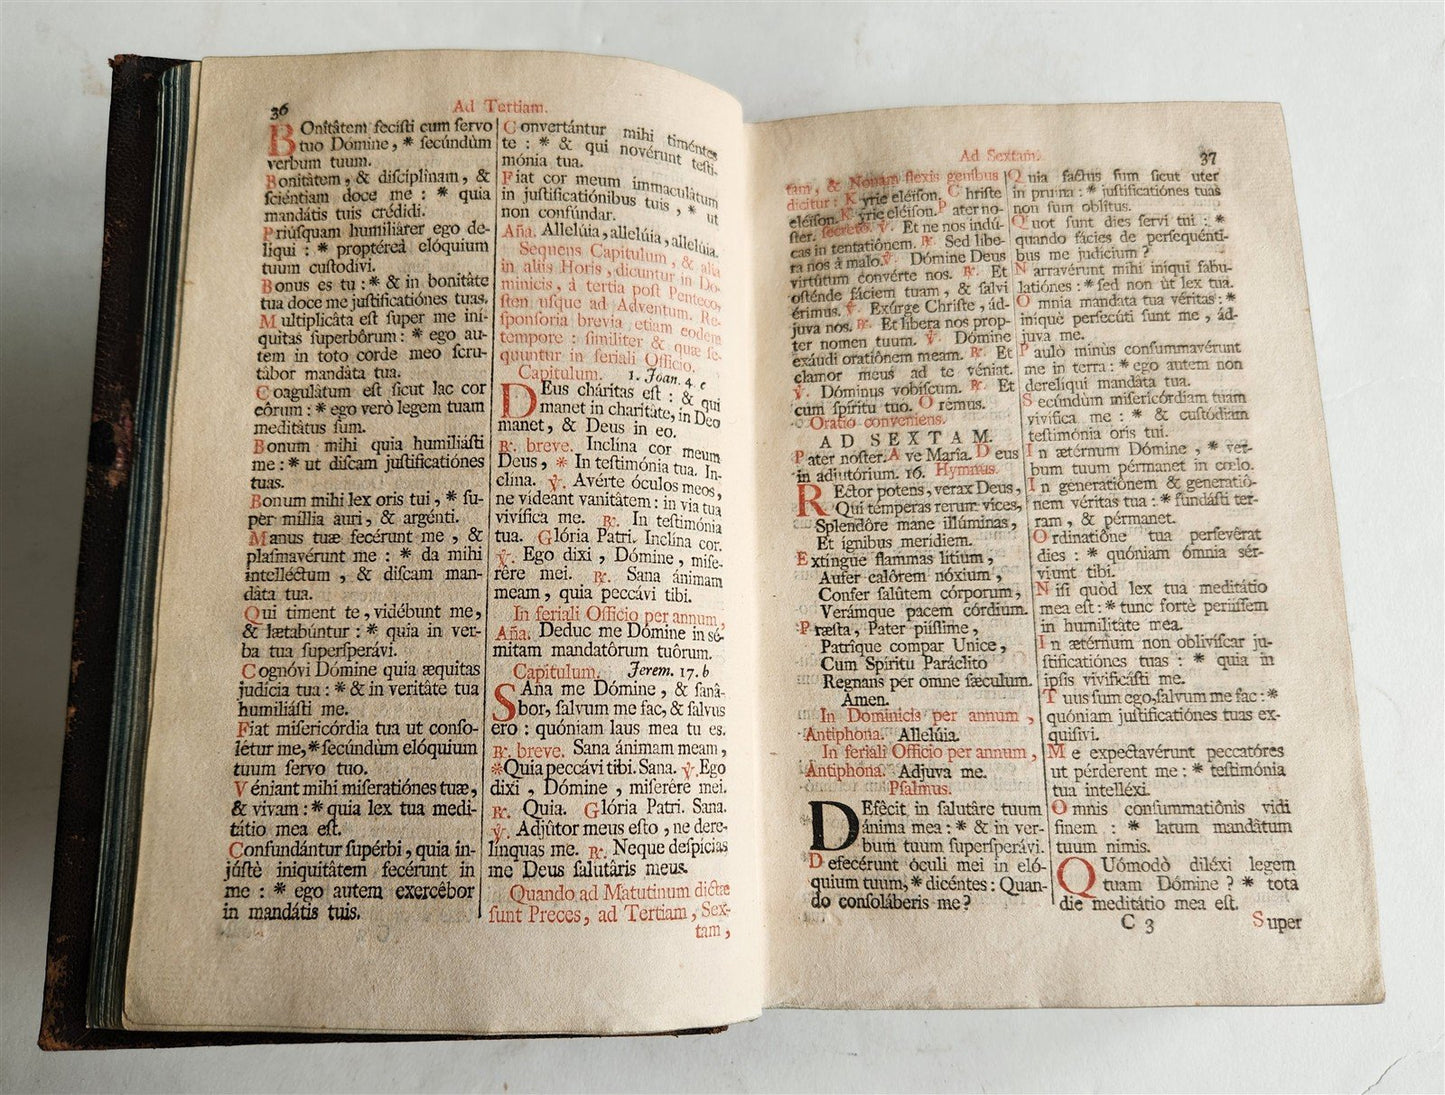 36
Ad Tertiam.
BOnitâtem fecisti cum servo
tuo Dómine, * secúndùm
verbum tuum.
Bonitâtem, & disciplinam, &
sciéntiam doce me : * quia
mandátis tuis crédidi.
Priúsquam humiliárer ego de-
liqui : * proptéreà elóquium
tuum custodivi.
Bonus es tu : * & in bonitâte
tua doce me justificatiónes tuas.
Multiplicâta est super me ini-
quitas superbôrum : * ego au-
tem in toto corde meo scru-
tâbor mandâta tua.
Coagulâtum est sicut lac cor
eôrum : * ego verò legem tuam
meditâtus sum.
Bonum mihi quia humiliásti
me : * ut discam justificatiónes
tuas.
Bonum mihi lex oris tui, * su-
per míllia auri, & argénti.
Manus tuæ fecérunt me, &
plasmavérunt me : * da mihi
intelléctum, & discam man-
dâta tua.
Qui timent te, vidébunt me,
& lætabúntur : * quia in ver-
ba tua supersperávi.
Cognóvi Dómine quia æquitas
judícia tua : * & in veritâte tua
humiliásti me.
Fiat misericórdia tua ut conso-
létur me, * secúndùm elóquium
tuum servo tuo.
Véniant mihi miseratiónes tuæ,
& vivam : * quia lex tua medi-
tátio mea est.
Confundántur supérbi, quia in-
jústè iniquitâtem fecérunt in
me : * ego autem exercêbor
in mandátis tuis.
Convertántur mihi timéntes
te : * & qui novérunt testi-
mónia tua.
Fiat cor meum immaculâtum
in justificatiónibus tuis, * ut
non confúndar.
Aña. Allelúia, allelúia, allelúia.
Sequens Capitulum, & alia
in aliis Horis, dicuntur in Do-
minicis, à tertia post Penteco-
sten usque ad Adventum. Re-
sponsoria brevia etiam eodem
tempore : similiter & quæ se-
quuntur in feriali Officio.
Capitulum. 1. Joan. 4. c
DEus cháritas est : & qui
manet in charitâte, in Deo
manet, & Deus in eo.
℟. breve. Inclína cor meum
Deus, * In testimónia tua. In-
clina. ℣. Avérte óculos meos,
ne vídeant vanitâtem : in via tua
vivífica me. ℟. In testimónia
tua. Glória Patri. Inclína cor.
℣. Ego dixi, Dómine, mise-
rêre mei. ℟. Sana ánimam
meam, quia peccávi tibi.
In feriali Officio per annum,
Aña. Deduc me Dómine in sé-
mitam mandatôrum tuôrum.
Capitulum. Jerem. 17. b
SAna me Dómine, & sanâ-
bor, salvum me fac, & salvus
ero : quóniam laus mea tu es.
℟. breve. Sana ánimam meam,
* Quia peccávi tibi. Sana. ℣. Ego
dixi, Dómine, miserêre mei.
℟. Quia. Glória Patri. Sana.
℣. Adjûtor meus esto, ne dere-
línquas me. ℟. Neque despícias
me Deus salutâris meus.
Quando ad Matutinum dictæ
sunt Preces, ad Tertiam, Sex-
tam,
Ad Sextam.
37
tam, & Nonam flexis genibus
dicitur : Kyrie eléison. Christe
eléison. Kyrie eléison. Pater no-
ster. secretò. ℣. Et ne nos indú-
cas in tentatiônem. ℟. Sed libe-
ra nos à malo. ℣. Dómine Deus
virtûtum convérte nos. ℟. Et
osténde fáciem tuam, & salvi
érimus. ℣. Exúrge Christe, ád-
juva nos. ℟. Et libera nos prop-
ter nomen tuum. ℣. Dómine
exáudi oratiônem meam. ℟. Et
clamor meus ad te véniat.
℣. Dóminus vobíscum. ℟. Et
cum spíritu tuo. Orêmus.
Oratio conveniens.
AD SEXTAM.
Pater noster. Ave María. Deus
in adjutórium. 16. Hymnus.
REctor potens, verax Deus,
Qui témperas rerum vices,
Splendôre mane illúminas,
Et ígnibus meridiem.
Extíngue flammas lítium,
Aufer calôrem nóxium,
Confer salûtem córporum,
Verámque pacem córdium.
Præsta, Pater piíssime,
Patríque compar Unice,
Cum Spíritu Paráclito
Regnans per omne sæculum.
Amen.
In Dominicis per annum,
Antiphona. Allelúia.
In feriali Officio per annum,
Antiphona. Adjuva me.
Psalmus.
DEfêcit in salutâre tuum
ánima mea : * & in ver-
bum tuum supersperávi.
Defecérunt óculi mei in eló-
quium tuum, * dicéntes : Quan-
do consoláberis me?
Quia factus sum sicut uter
in pruína : * justificatiónes tuas
non sum oblîtus.
Quot sunt dies servi tui : *
quando fácies de persequénti-
bus me judicium?
Narravérunt mihi iniqui fabu-
latiónes : * sed non ut lex tua.
Omnia mandata tua véritas : *
iniquè persecúti sunt me, ád-
juva me.
Paulò minùs consummavérunt
me in terra : * ego autem non
derelíqui mandáta tua.
Secúndùm misericórdiam tuam
vivífica me : * & custódiam
testimónia oris tui.
In ætérnum Dómine, * ver-
bum tuum pérmanet in cœlo.
In generatiônem & generatiô-
nem véritas tua : * fundásti ter-
ram, & pérmanet.
Ordinatiône tua persevêrat
dies : * quóniam ómnia sér-
viunt tibi.
Nisi quòd lex tua meditátio
mea est : * tunc fortè periíssem
in humilitâte mea.
In ætérnum non oblivíscar ju-
stificatiónes tuas : * quia in
ipsis vivificásti me.
Tuus sum ego, salvum me fac : *
quóniam justificatiónes tuas ex-
quisívi.
Me expectavérunt peccatóres
ut pérderent me : * testimónia
tua intelléxi.
Omnis consummatiônis vidi
finem : * latum mandâtum
tuum nimis.
QUómodò diléxi legem
tuam Dómine? * tota
die meditátio mea est.
C 3
Super